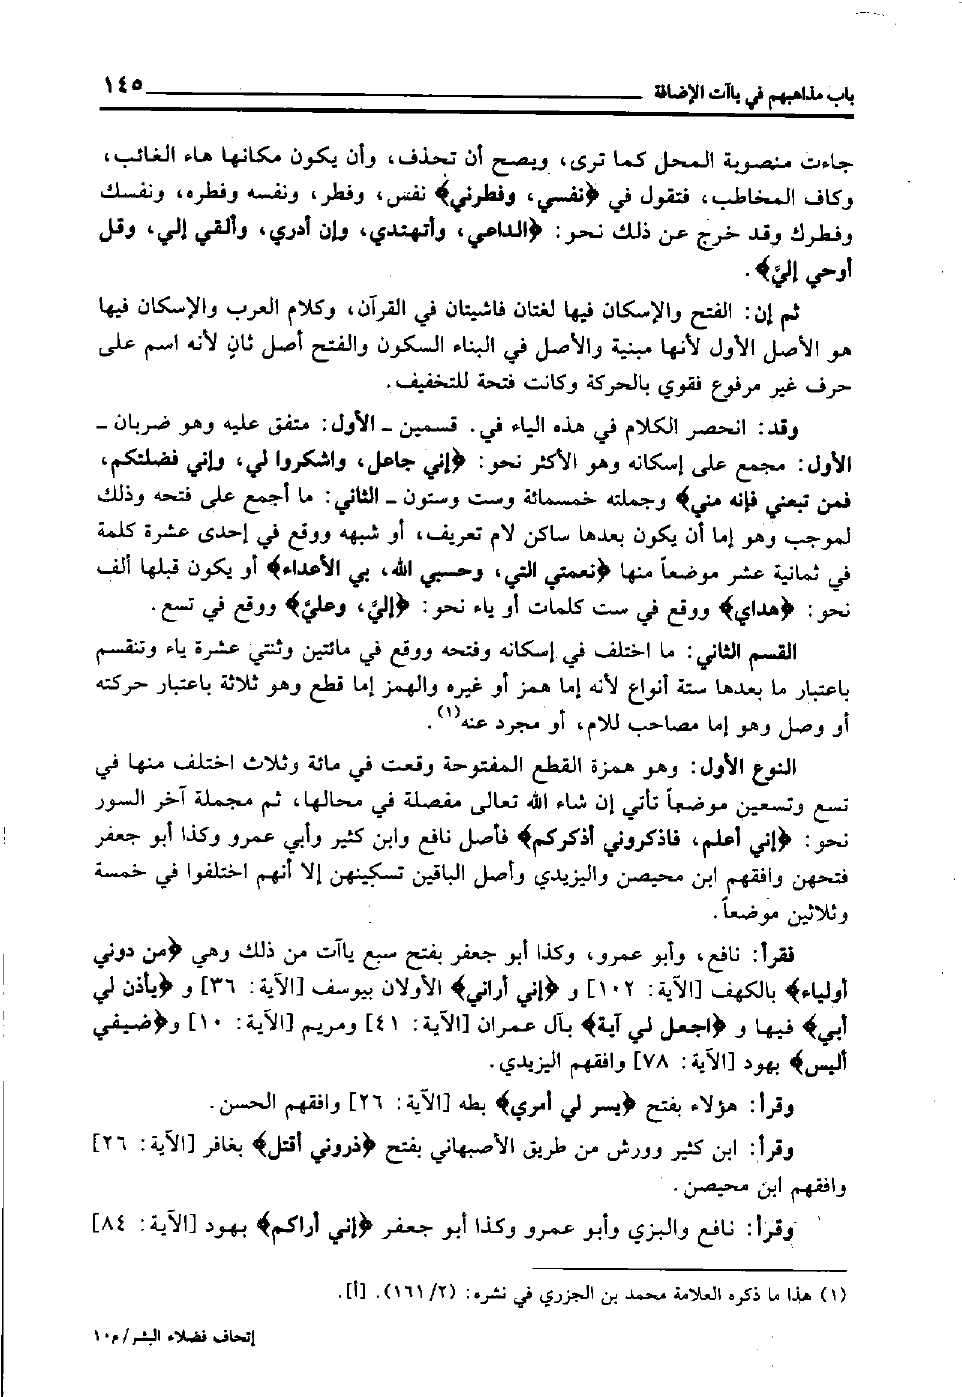 باب مذاهبهم في ياآت الإضافة ١٤٥
جاءت منصوبة المحل كما ترى، ويصح أن تحذف، وأن يكون مكانها هاء الغائب،
وكاف المخاطب، فتقول في ﴿نفسي، وفطرني﴾ نفس، وفطر، ونفسه وفطره، ونفسك
وفطرك وقد خرج عن ذلك نحو: ﴿الداعي، وأتهتدي، وإن أدري، وألقي إلي، وقل
أوحي إليّ﴾.
ثم إن: الفتح والإسكان فيها لغتان فاشيتان في القرآن، وكلام العرب والإسكان فيها
هو الأصل الأول لأنها مبنية والأصل في البناء السكون والفتح أصل ثانٍ لأنه اسم على
حرف غير مرفوع فقوي بالحركة وكانت فتحة للتخفيف.
وقد: انحصر الكلام في هذه الياء في. قسمين ـ الأول: متفق عليه وهو ضربان ـ
الأول: مجمع على إسكانه وهو الأكثر نحو: ﴿إني جاعل، واشكروا لي، وإني فضلتكم،
فمن تبعني فإنه مني﴾ وجملته خمسمائة وست وستون ـ الثاني: ما أجمع على فتحه وذلك
لموجب وهو إما أن يكون بعدها ساكن لام تعريف، أو شبهه ووقع في إحدى عشرة كلمة
في ثمانية عشر موضعاً منها ﴿نعمتي التي، وحسبي الله، بي الأعداء﴾ أو يكون قبلها ألف
نحو: ﴿هداي﴾ ووقع في ست كلمات أو ياء نحو: ﴿إليّ، وعليّ﴾ ووقع في تسع.
القسم الثاني: ما اختلف في إسكانه وفتحه ووقع في مائتين وثنتي عشرة ياء وتنقسم
باعتبار ما بعدها ستة أنواع لأنه إما همز أو غيره والهمز إما قطع وهو ثلاثة باعتبار حركته
أو وصل وهو إما مصاحب للام، أو مجرد عنه(١).
النوع الأول: وهو همزة القطع المفتوحة وقعت في مائة وثلاث اختلف منها في
تسع وتسعين موضعاً تأتي إن شاء الله تعالى مفصلة في محالها، ثم مجملة آخر السور
نحو: ﴿إني أعلم، فاذكروني أذكركم﴾ فأصل نافع وابن كثير وأبي عمرو وكذا أبو جعفر
فتحهن وافقهم ابن محيصن واليزيدي وأصل الباقين تسكينهن إلا أنهم اختلفوا في خمسة
وثلاثين موضعاً.
فقرأ: نافع، وأبو عمرو، وكذا أبو جعفر بفتح سبع ياآت من ذلك وهي ﴿من دوني
أولياء﴾ بالكهف [الآية: ١٠٢] و ﴿إني أراني﴾ الأولان بيوسف [الآية: ٣٦] و ﴿يأذن لي
أبي﴾ فيها و ﴿اجعل لي آية﴾ بآل عمران [الآية: ٤١] ومريم [الآية: ١٠] و﴿ضيفي
أليس﴾ بهود [الآية: ٧٨] وافقهم اليزيدي.
وقرأ: هؤلاء بفتح ﴿يسر لي أمري﴾ بطه [الآية: ٢٦] وافقهم الحسن.
وقرأ: ابن كثير وورش من طريق الأصبهاني بفتح ﴿ذروني أقتل﴾ بغافر [الآية: ٢٦]
وافقهم ابن محيصن.
وقرأ: نافع والبزي وأبو عمرو وكذا أبو جعفر ﴿إني أراكم﴾ بهود [الآية: ٨٤]
(١) هذا ما ذكره العلامة محمد بن الجزري في نشره: (٢/ ١٦١). [أ].
إتحاف فضلاء البشر/ م١٠